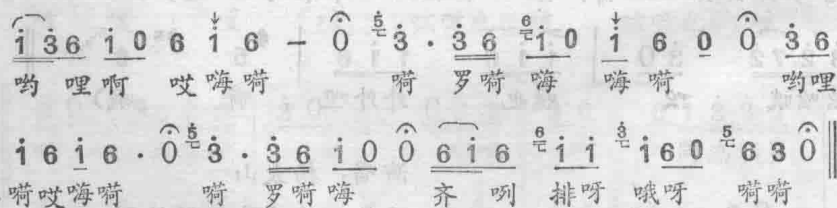 i 3 6 i 0 6 i 6 – 0 5 3 · 3 6 6 i 0 i 6 0 0 3 6
哟 哩 啊 哎 嗨 嗬 嗬 罗 嗬 嗨 嗨 嗬 哟 哩
i 6 i 6 · 0 5 3 · 3 6 i 0 0 6 i 6 6 i i 3 i 6 0 5 6 3 0
嗬 哎 嗨 嗬 嗬 罗 嗬 嗨 齐 咧 排 呀 哦 呀 嗬 嗬